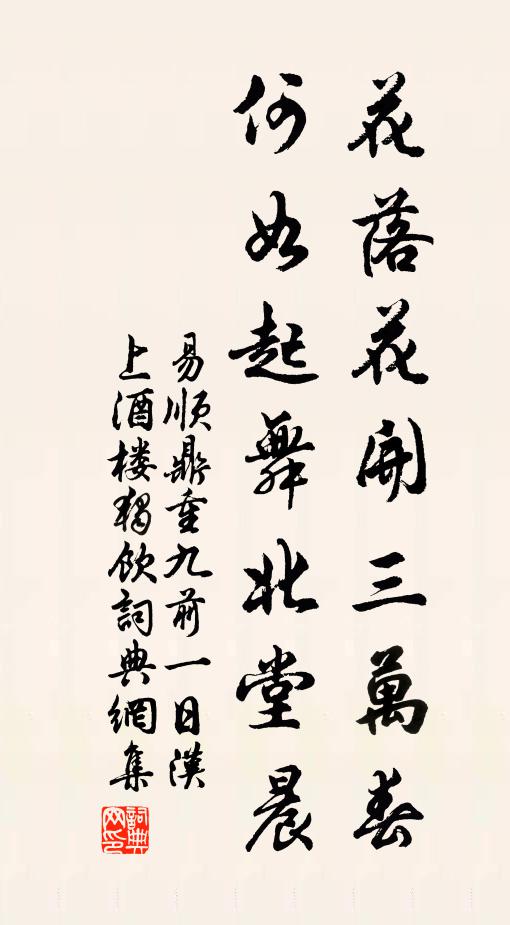 花落花開三萬春
何如起舞北堂晨
易順鼎重九前一日漢
上酒楼獨飲詞典網集
詞典
网印